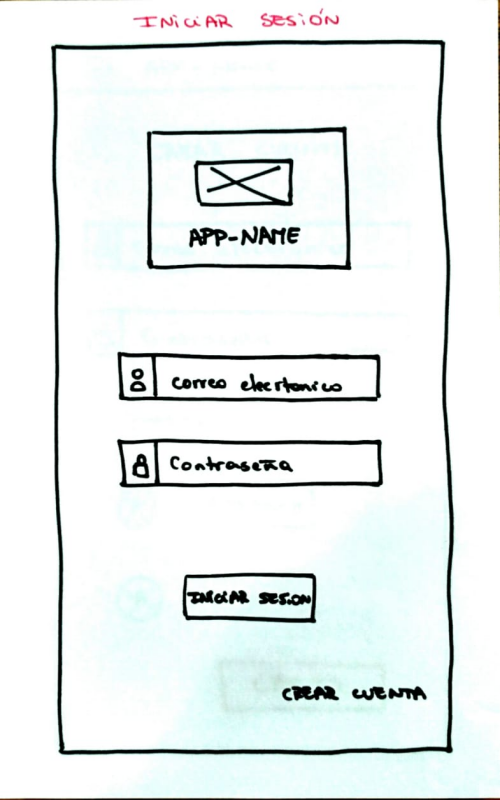 INICIAR SESIÓN
APP-NAME
correo electronico
Contraseña
INICIAR SESION
CREAR CUENTA